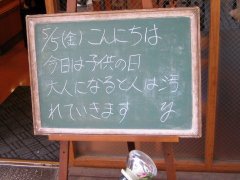 5/5(金)こんにちは
今日は子供の日
大人になると人は汚
れていきます